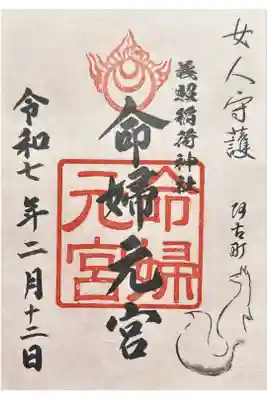 女人守護
阿古町
義照稲荷神社
命婦元宮
命婦元宮
令和七年二月十二日